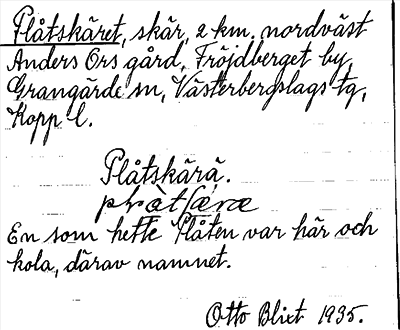 Plåtskäret, skär, 2 km. nordväst
Anders Ors gård, Fröjdberget by,
Grangärde sn, Västerbergslags tg,
Kopp l.
Plåtskärä.
En som hette Plåten var här och
kola, därav namnet.
Otto Blixt 1935.